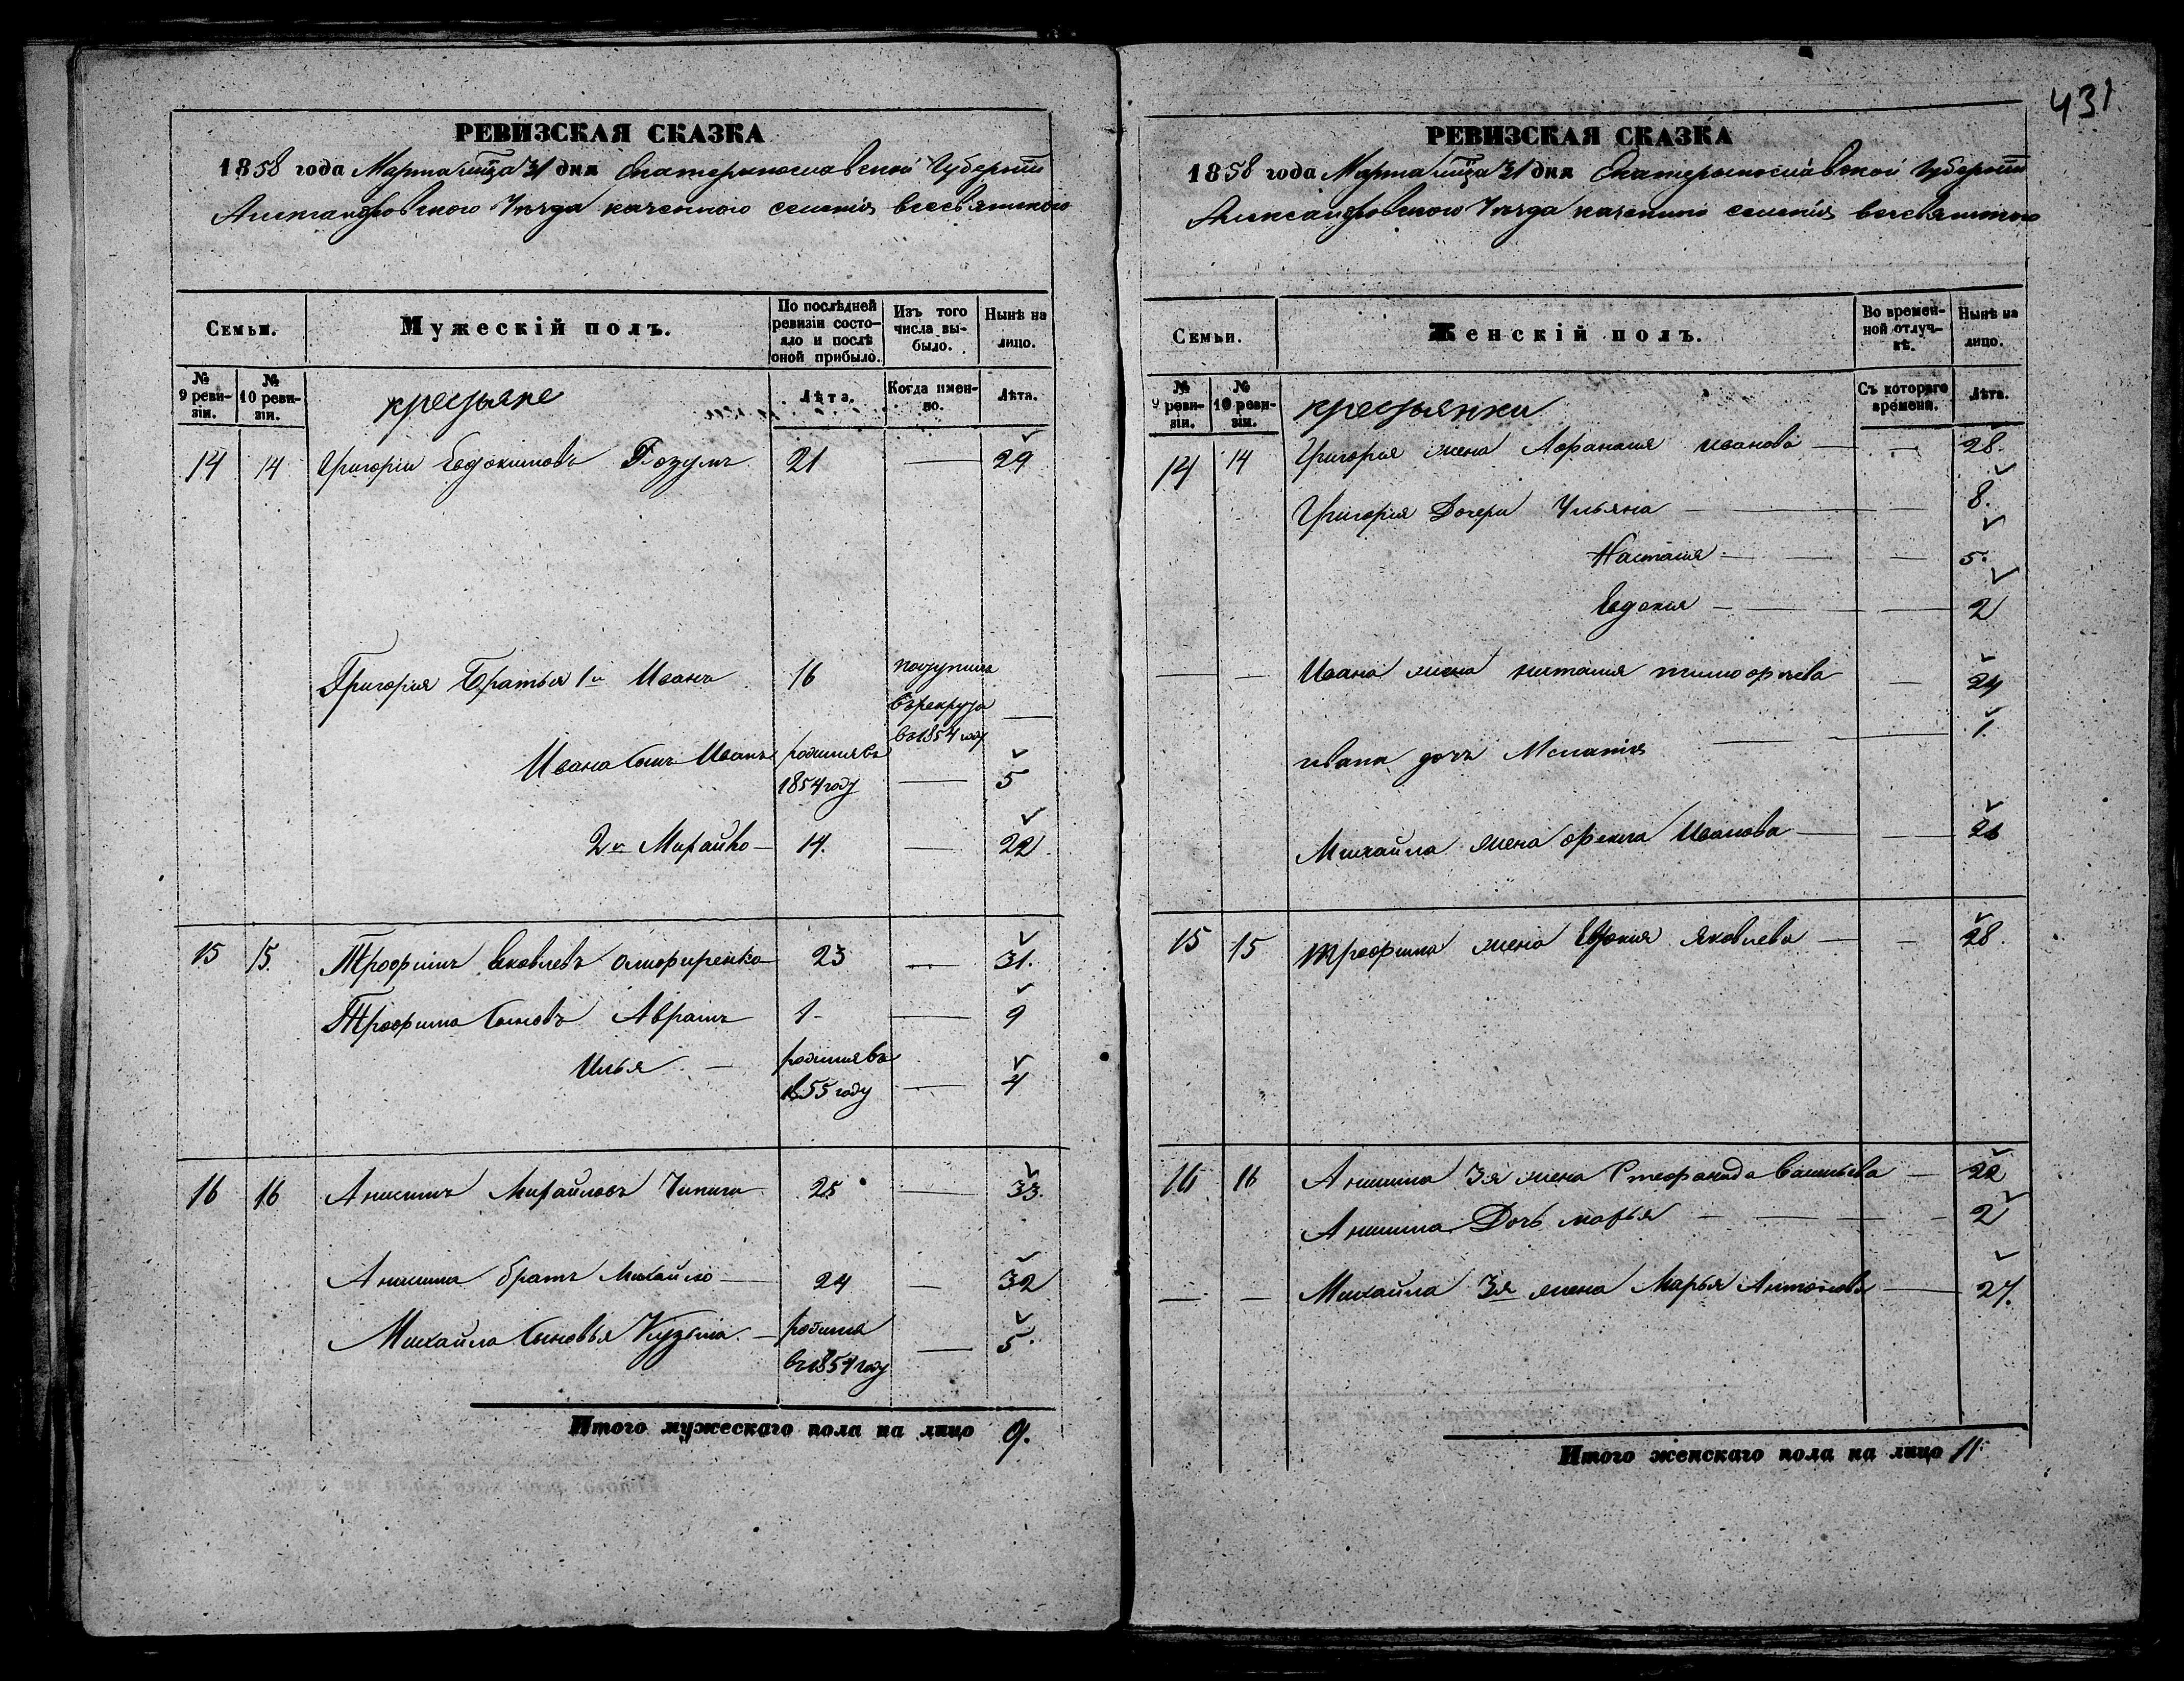 РЕВИЗСКАЯ СКАЗКА
1858 года Марта мца 31 дня Екатеринославской Губернiи
Александровского Уѣзда казенного селенiя всесвятского
Семьи.
Мужескiй полъ.
По послѣдней ревизiи состояло и послѣ оной прибыло.
Изъ того числа выбыло.
Нынѣ на лицо.
№ 9 ревизiи.
№ 10 ревизiи.
крестьяне
Лѣта.
Когда именно.
Лѣта.
14 14 Григорiй Евдокимовъ Гозумъ 21 — 29
Григорiя Братья 1й Иванъ 16 поступилъ
въ рекруты —
въ 1854 году
Ивана Сынъ Иванъ родился въ
1854 году — 5
2й Михайло — 14. — 22.
15 15. Трофимъ Яковлевъ Олифиренко 23 — 31.
Трофима Сыновъ Аврамъ 1 — 9
Илья — родился въ
1855 году — 4
16 16 Анисимъ Михайловъ 25 — 33.
Анисима братъ Михайло — 24 — 32
Михайла Сыновья Кузьма — родился
въ 1854 году — 5.
Итого мужескаго пола на лицо 9.
431
РЕВИЗСКАЯ СКАЗКА
1858 года Марта мца 31 дня Екатеринославской Губернiи
Александровского Уѣзда казенного селенiя всесвятского
Семьи.
Женскiй полъ.
Во временной отлучкѣ.
Нынѣ на лицо.
№ 9 ревизiи.
№ 10 ревизiи.
крестьянки
Съ котораго времени.
Лѣта.
14 14 Григорiя жена Афанасия Иванова — — 28.
Григорiя Дочери Ульяна — — 8.
Настасия — — 5.
Евдокия — — 2
— — Ивана жена наталия тимофѣева — 24
ивана дочъ Меланiя — 1
Михайла жена Фекла Иванова — — 26
15 15 трофима жена Евдокия Яковлева — — 28.
16 16 Анисима 3я жена Стефанида Васильева — 22
Анисима Дочь марья — — 2
— — Михайла 3я жена Марья Антонова — 27.
Итого женскаго пола на лицо 11